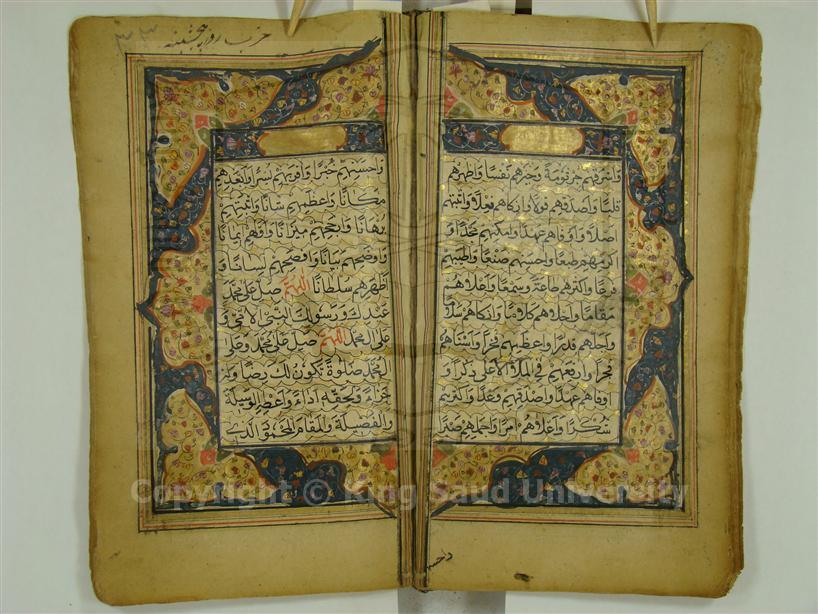 حزب روز پنجشنبه
٣٣
واشرفهم جرثومة وخيرهم نفسا واطهرهم
قلبا واصدقهم قولا وازكاهم فعلا واثبتهم
اصلا واوفاهم عهدا وامكنهم مجدا و
اكرمهم طبعا واحسنهم صنعا واطيبهم
فرعا واكثرهم طاعة وسمعا واعلاهم
مقاما واحلاهم كلاما وازكاهم سلاما
واجلهم قدرا واعظمهم فخرا واسناهم
فخرا وارفعهم في الملأ الاعلى ذكرا و
اوفاهم عهدا واصدقهم وعدا واكثرهم
شكرا واعلاهم امرا واجملهم صبرا
واحسنهم خيرا واقربهم يسرا وابعدهم
مكانا واعظمهم شانا واثبتهم
برهانا وارجحهم ميزانا واولهم ايمانا
واوضحهم بيانا وافصحهم لسانا و
اظهرهم سلطانا اللهم صل على محمد
عبدك ورسولك النبي الامي و
على ال محمد اللهم صل على محمد وعلى
ال محمد صلوة تكون لك رضا وله
جزاء ولحقه اداء واعطه الوسيلة
والفضيلة والمقام المحمود الذي
واحسنهم
Copyright © King Saud University